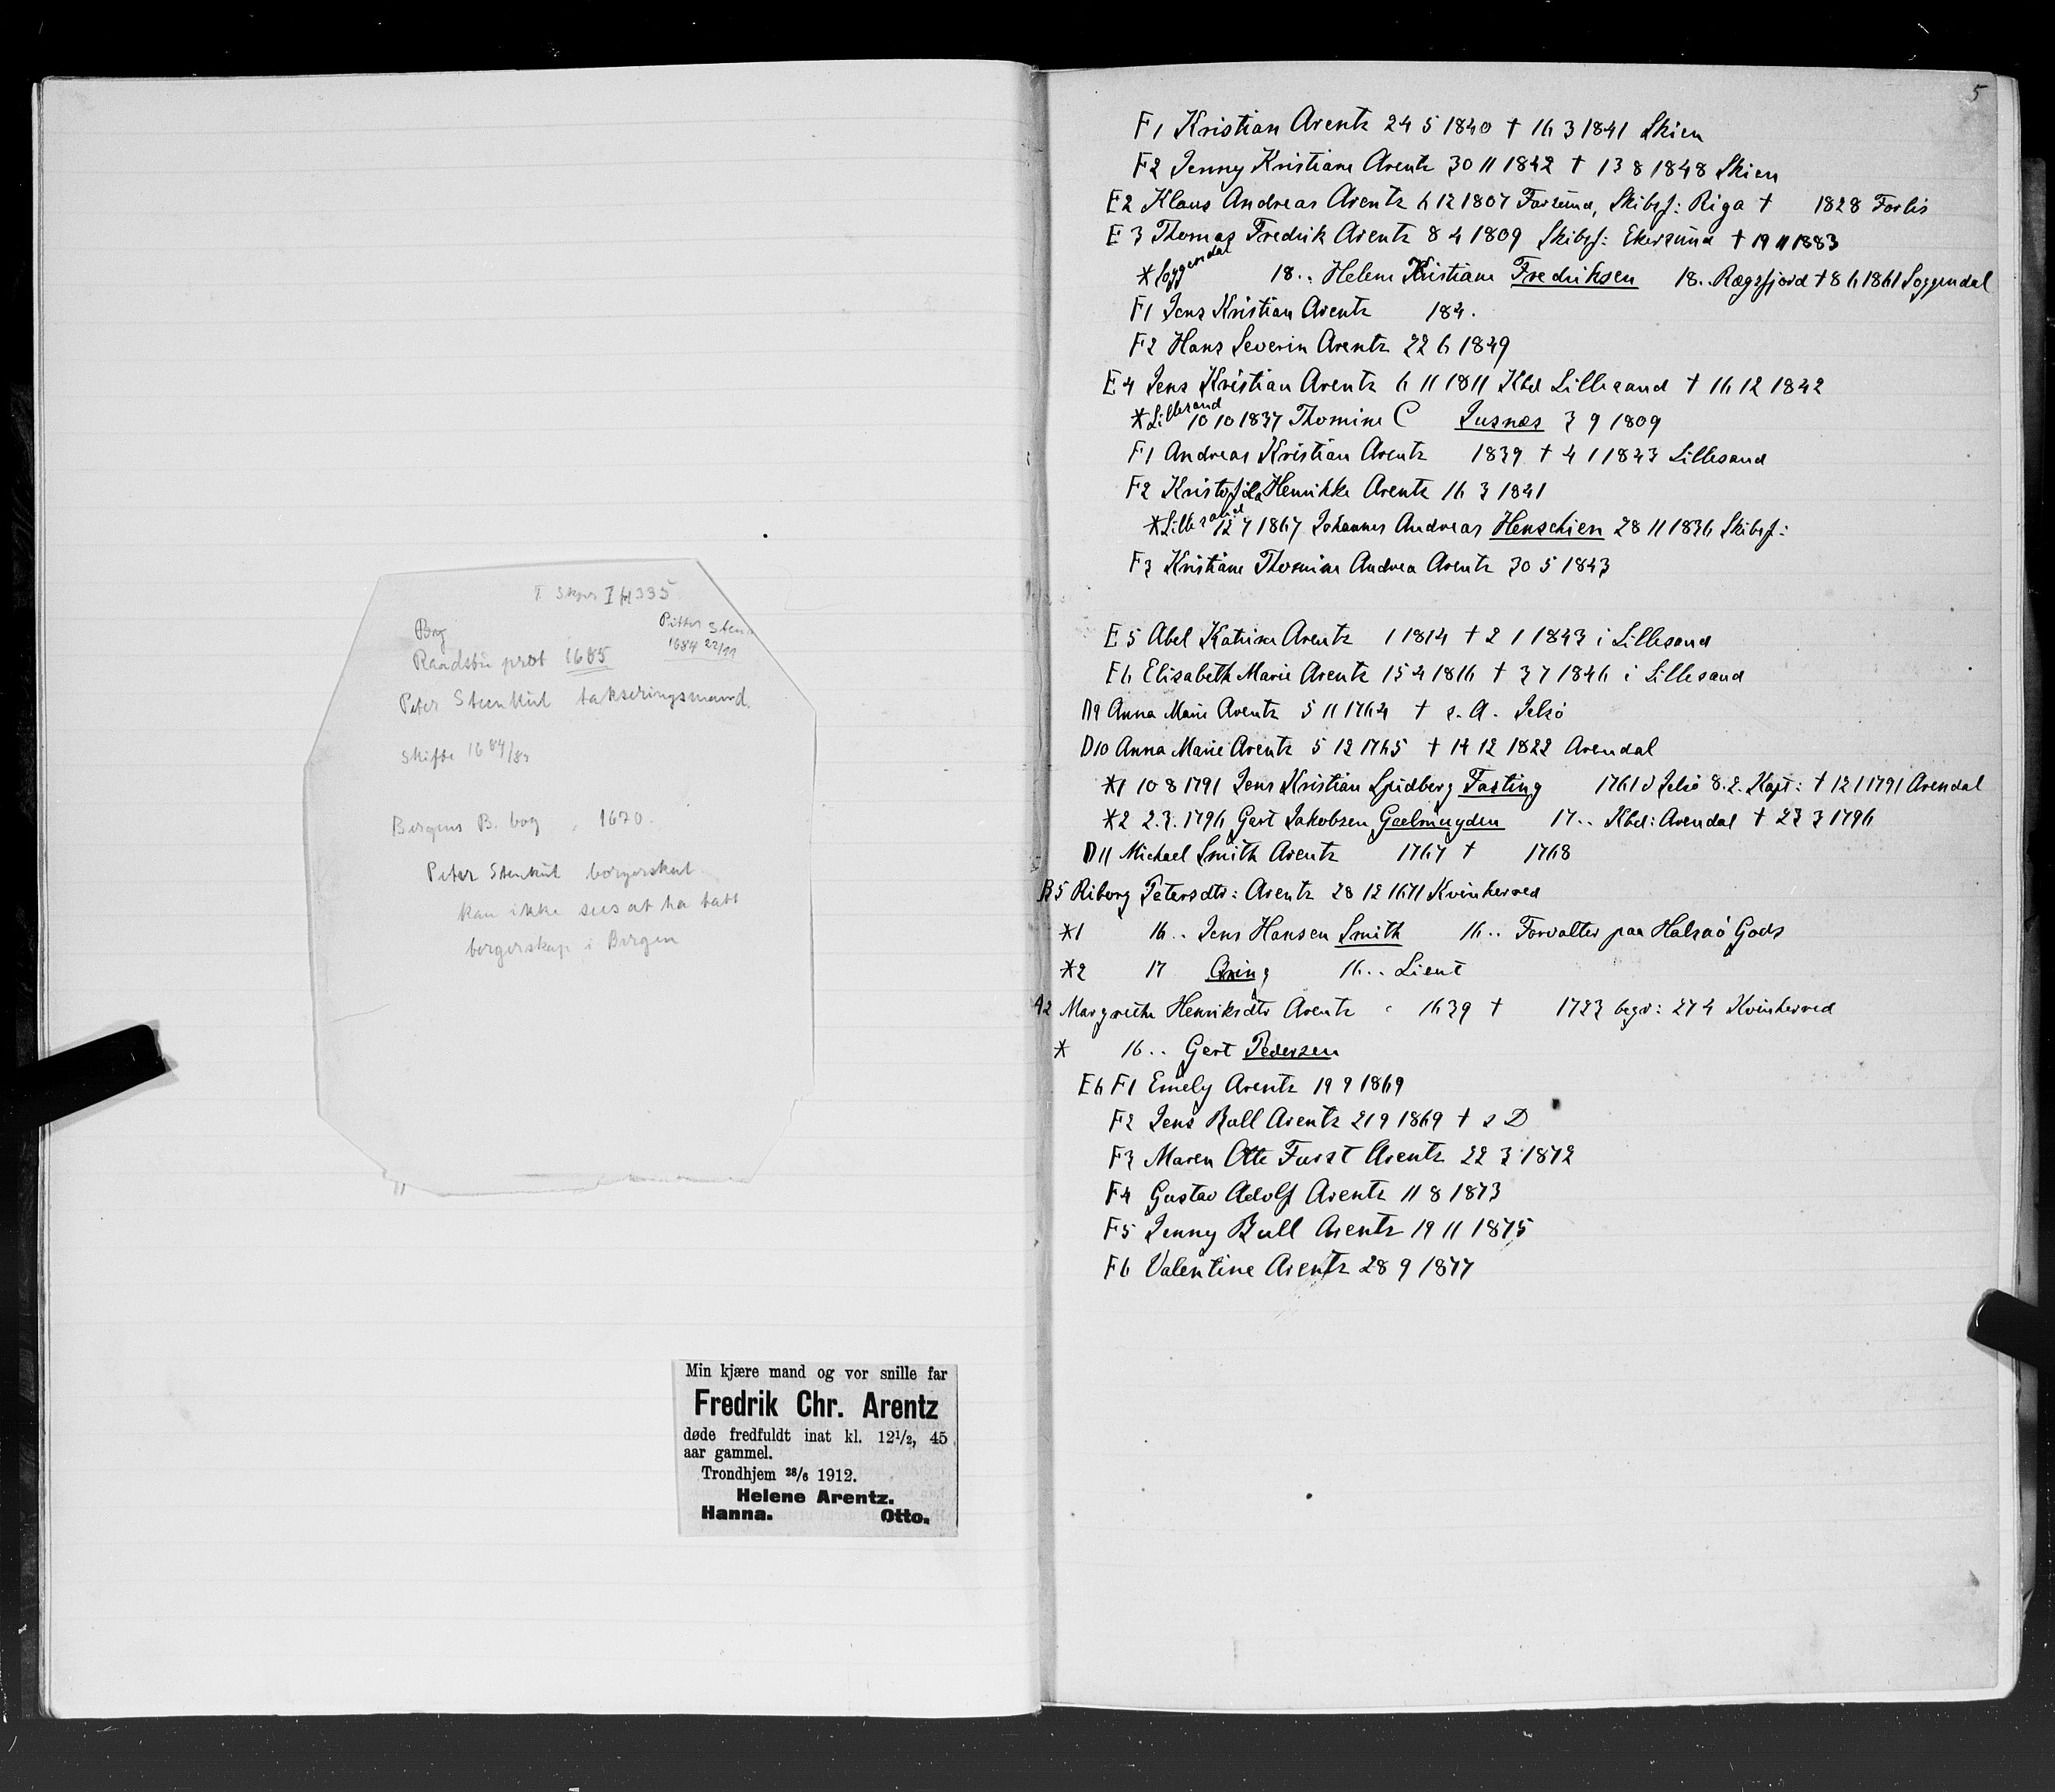 T. Skprs I H 335
Bog
Pitter Sten
1684 22/11
Raadstu prot 1685
Peter Steenkul takseringsmand.
Skifte 1684/85
Bergens B. bog, 1670.
Peter Stenkul borgerskab
kan ikke sees at ha tatt
borgerskap i Bergen
Min kjære mand og vor snille far
Fredrik Chr. Arentz
døde fredfuldt inat kl. 12½, 45
aar gammel.
Trondhjem 28/6 1912.
Helene Arentz.
Hanna. Otto.
5
F1 Kristian Arentz 24 5 1840 † 16 3 1841 Skien
F2 Jenny Kristiane Arentz 30 11 1842 † 13 8 1848 Skien
E2 Klaus Andreas Arentz 6 12 1807 Farsund, Skibsf: Riga † 1828 Forlis
E3 Thomas Fredrik Arentz 8 4 1809 Skibsf: Ekersund † 19 11 1883
* Soggendal 18.. Helene Kristiane Fredriksen 18.. Rægefjord † 8 6 1861 Soggendal
F1 Jens Kristian Arentz 184.
F2 Hans Severin Arentz 22 6 1849
E4 Jens Kristian Arentz 6 11 1811 Kbd Lillesand † 16 12 1842
* Lillesand 10 10 1837 Thomine C Jusnæs 3 9 1809
F1 Andreas Kristian Arentz 1839 † 4 1 1843 Lillesand
F2 Kristofila Henrikke Arentz 16 3 1841
* Lillesand 12 7 1867 Johannes Andreas Henschien 28 11 1836 Skibsf:
F3 Kristiane Thomine Andrea Arentz 30 5 1843
E5 Abel Katrine Arentz 1 1814 † 2 1 1843 i Lillesand
E6 Elisabeth Marie Arentz 15 4 1816 † 3 7 1846 i Lillesand
D9 Anna Marie Arentz 5 11 1764 † s. A. Jelsö
D10 Anna Marie Arentz 5 12 1765 † 14 12 1822 Arendal
*1 10 8 1791 Jens Kristian Spidberg Fasting 1761 Jelsö 8.2. Kapt: † 12 1 1791 Arendal
*2 2.3. 1796 Gert Jakobsen Gaelmuyden 17.. Kbd: Arendal † 23 3 1796
D11 Michael Smith Arentz 1767 † 1768
B5 Riborg Petersdtr: Arentz 28 12 1671 Kvinherred
*1 16.. Jens Hansen Smith 16.. Forvalter paa Halsnö Gods
*2 17 16.. Lieut
A2 Margrethe Henriksdtr Arentz c 1639 † 1723 begr: 27 4 Kvinherred
* 16.. Gert Pedersen
E6 F1 Emely Arentz 19 9 1869
F2 Jens Bull Arentz 21 9 1869 † s D
F3 Maren Otte Furst Arentz 22 3 1872
F4 Gustav Adolf Arentz 11 8 1873
F5 Jenny Bull Arentz 19 11 1875
F6 Valentine Arentz 28 9 1877